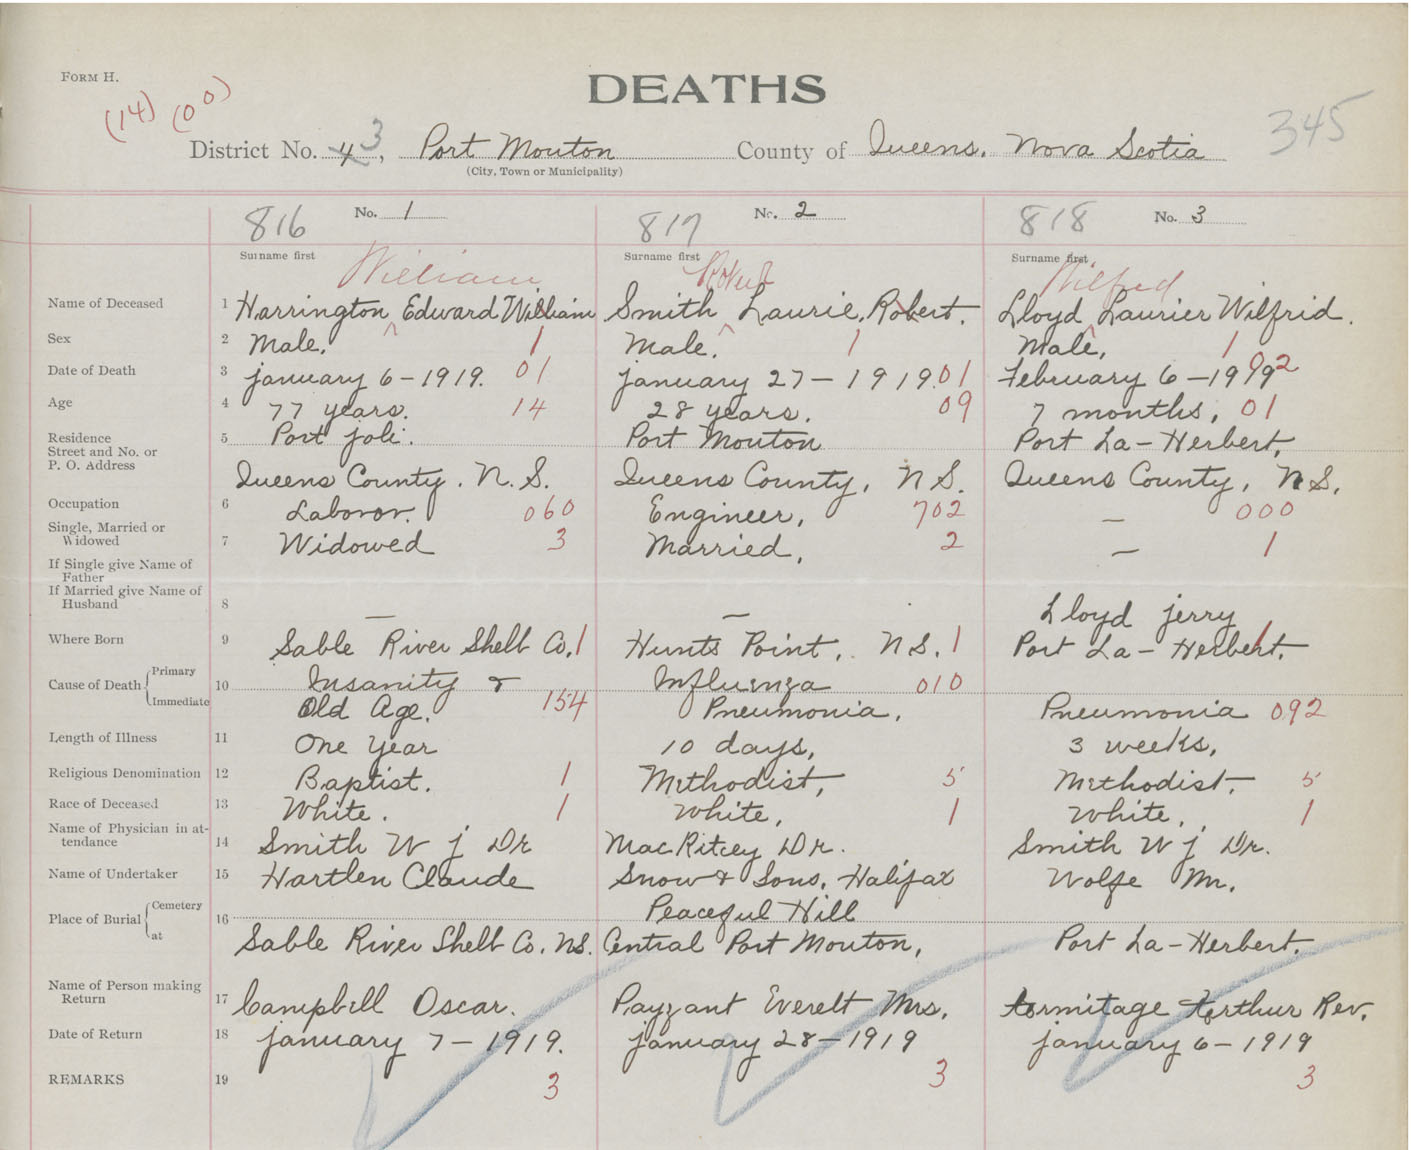 FORM H.
DEATHS
(14) (00)
345
District No. 4 3, Port Mouton County of Queens, Nova Scotia
(City, Town or Municipality)
816 No. 1 817 No. 2 818 No. 3
Surname first Surname first Surname first
William Robert Wilfred
Name of Deceased 1 Harrington ^ Edward William Smith ^ Laurie, Robert. Lloyd ^ Laurier Wilfrid.
Sex 2 Male. 1 Male. 1 Male, 1
Date of Death 3 january 6-1919. 01 january 27-1919 01 February 6-1919 02
Age 4 77 years. 14 28 years. 09 7 months, 01
Residence 5 Port joli. Port Mouton Port La-Herbert,
Street and No. or
P. O. Address Queens County. N.S. Queens County, N S. Queens County, N S,
Occupation 6 Laboror. 060 Engineer, 702 — 000
Single, Married or
Widowed 7 Widowed 3 Married, 2 — 1
If Single give Name of
Father
If Married give Name of
Husband 8 — — Lloyd jerry
Where Born 9 Sable River Shelb Co, 1 Hunts Point, N S. 1 Port La-Herbert. 1
Cause of Death Primary 10 Insanity & Influenza 010
Immediate Old Age. 154 Pneumonia, Pneumonia 092
Length of Illness 11 One Year 10 days, 3 weeks,
Religious Denomination 12 Baptist. 1 Methodist, 5 Methodist, 5
Race of Deceased 13 White. 1 White, 1 White, 1
Name of Physician in at-
tendance 14 Smith W j Dr MacRitcey Dr. Smith W j Dr.
Name of Undertaker 15 Hartlen Claude Snow & Sons, Halifax Wolfe Mr,
Place of Burial Cemetery 16 Peaceful Hill
at Sable River Shelb Co. NS. Central Port Mouton, Port La-Herbert.
Name of Person making
Return 17 Campbell Oscar. Payzant Everelt Mrs, Armitage Arthur Rev.
Date of Return 18 january 7-1919. january 28-1919 january 6-1919
REMARKS 19 3 3 3